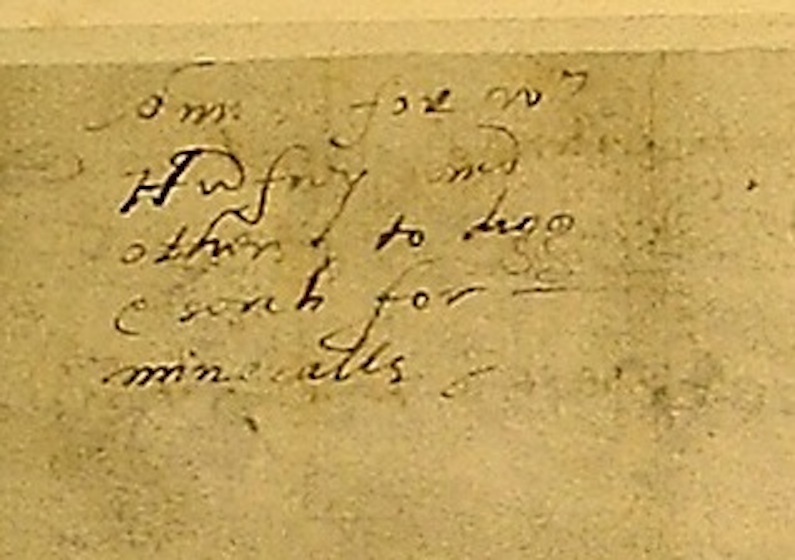 for wm
Humfrey and
others to digg
& serch for
mineralls